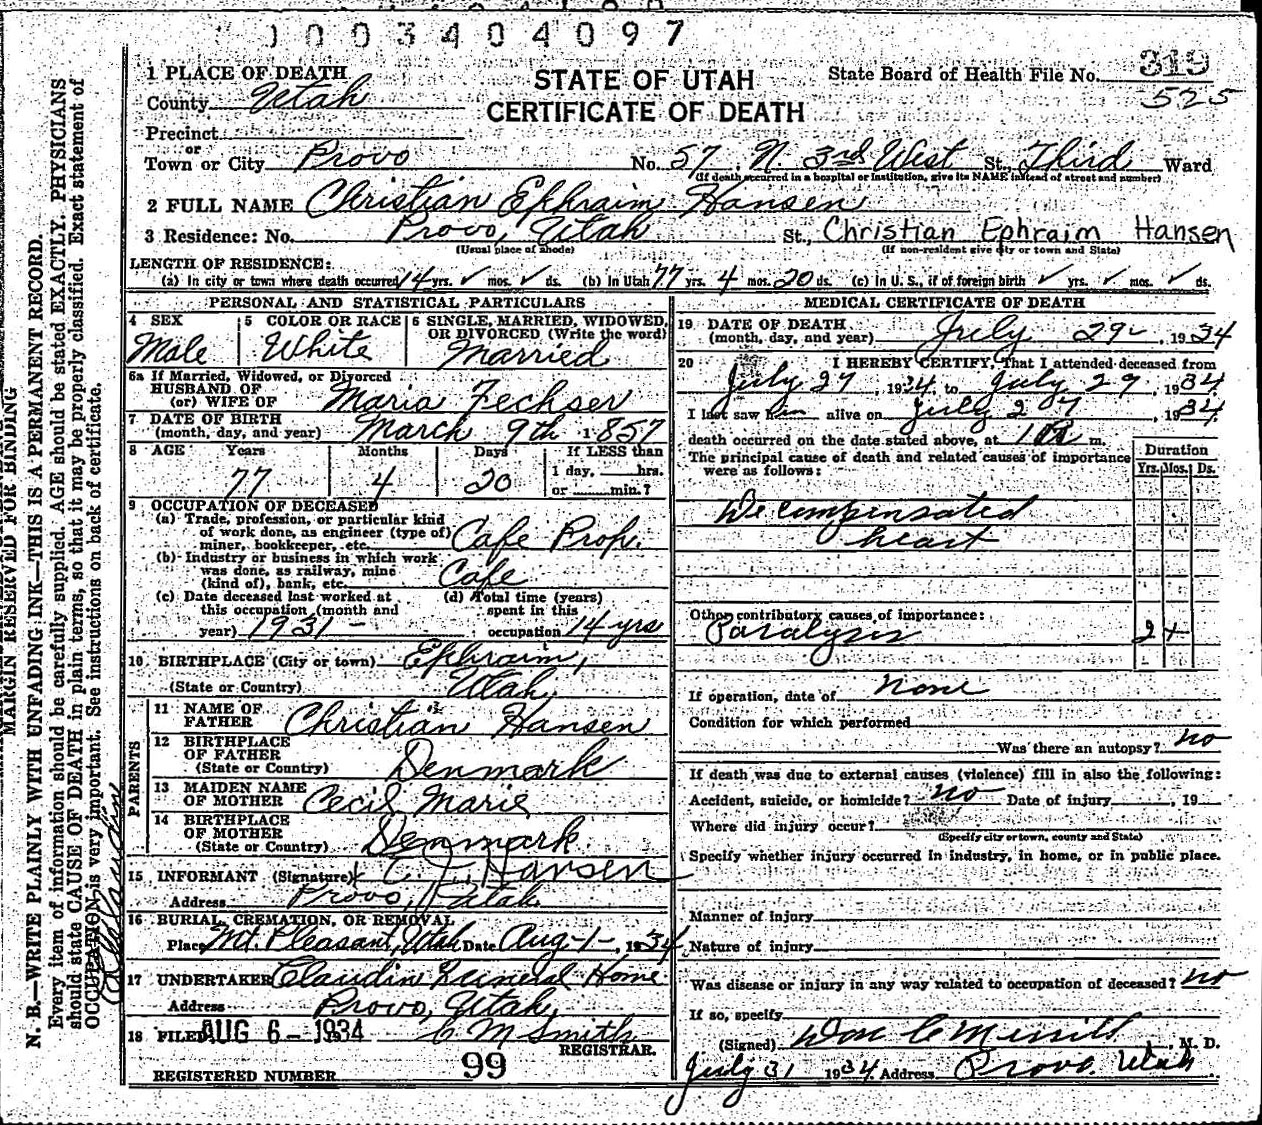 1003404097
STATE OF UTAH
CERTIFICATE OF DEATH
State Board of Health File No. 319
525
1 PLACE OF DEATH
County Utah
Precinct
or
Town or City Provo No. 57 N. 3rd West St., Third Ward
(If death occurred in a hospital or institution, give its NAME instead of street and number)
2 FULL NAME Christian Ephraim Hansen
3 Residence: No. Provo, Utah St., Christian Ephraim Hansen
(Usual place of abode) (If non-resident give city or town and State)
LENGTH OF RESIDENCE:
(a) In city or town where death occurred 14 yrs. ✓ mos. ✓ ds. (b) In Utah 77 yrs. 4 mos. 20 ds. (c) In U. S., if of foreign birth ✓ yrs. ✓ mos. ✓ ds.
PERSONAL AND STATISTICAL PARTICULARS
4 SEX Male
5 COLOR OR RACE White
6 SINGLE, MARRIED, WIDOWED, OR DIVORCED (Write the word) Married
6a If Married, Widowed, or Divorced
HUSBAND OF
(or) WIFE OF Maria Fechser
7 DATE OF BIRTH
(month, day, and year) March 9th 1857
8 AGE Years Months Days If LESS than
77 4 20 1 day, hrs.
or min.?
9 OCCUPATION OF DECEASED
(a) Trade, profession, or particular kind
of work done, as engineer (type of)
miner, bookkeeper, etc. Cafe Prop.
(b) Industry or business in which work
was done, as railway, mine
(kind of), bank, etc. Cafe
(c) Date deceased last worked at
this occupation (month and
year) 1931-
(d) Total time (years)
spent in this
occupation 14 yrs
10 BIRTHPLACE (City or town) Ephraim,
(State or Country) Utah
PARENTS
11 NAME OF
FATHER Christian Hansen
12 BIRTHPLACE
OF FATHER
(State or Country) Denmark
13 MAIDEN NAME
OF MOTHER Cecil Marie
14 BIRTHPLACE
OF MOTHER
(State or Country) Denmark
15 INFORMANT (Signature) Hansen
Address Provo, Utah
16 BURIAL, CREMATION, OR REMOVAL
Place Mt. Pleasant, Utah Date Aug-1-, 1934
17 UNDERTAKER Claudin Funeral Home
Address Provo, Utah,
18 FILED AUG 6 - 1934 C M Smith
REGISTRAR.
REGISTERED NUMBER 99
MEDICAL CERTIFICATE OF DEATH
19 DATE OF DEATH
(month, day, and year) July 29-, 1934
20 I HEREBY CERTIFY, That I attended deceased from
July 27, 1934, to July 29, 1934
I last saw him alive on July 27, 1934
death occurred on the date stated above, at m.
The principal cause of death and related causes of importance
were as follows:
Duration
Yrs. Mos. Ds.
Decompensated
heart
Other contributory causes of importance:
Paralysis 2 +
If operation, date of none
Condition for which performed
Was there an autopsy? no
If death was due to external causes (violence) fill in also the following:
Accident, suicide, or homicide? no Date of injury , 19
Where did injury occur?
(Specify city or town, county and State)
Specify whether injury occurred in industry, in home, or in public place.
Manner of injury
Nature of injury
Was disease or injury in any way related to occupation of deceased? no
If so, specify
(Signed) Don C Merrill, M. D.
July 31 1934 Address Provo Utah
MARGIN RESERVED FOR BINDING
N. B.—WRITE PLAINLY WITH UNFADING INK—THIS IS A PERMANENT RECORD.
Every item of information should be carefully supplied. AGE should be stated EXACTLY. PHYSICIANS
should state CAUSE OF DEATH in plain terms, so that it may be properly classified. Exact statement of
OCCUPATION is very important. See instructions on back of certificate.